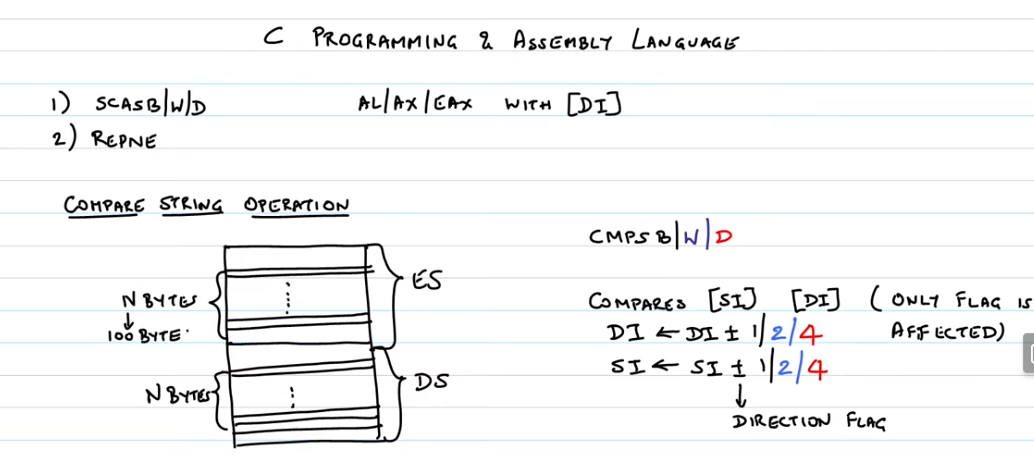 C PROGRAMMING & ASSEMBLY LANGUAGE
1) SCASB|W|D AL/AX/EAX WITH [DI]
2) REPNE
COMPARE STRING OPERATION
CMPSB|W|D
ES
N BYTES
↓
100 BYTE.
COMPARES [SI] [DI] (ONLY FLAG IS AFFECTED)
DI ← DI ± 1/2/4
SI ← SI ± 1/2/4
↓
DIRECTION FLAG
DS
N BYTES